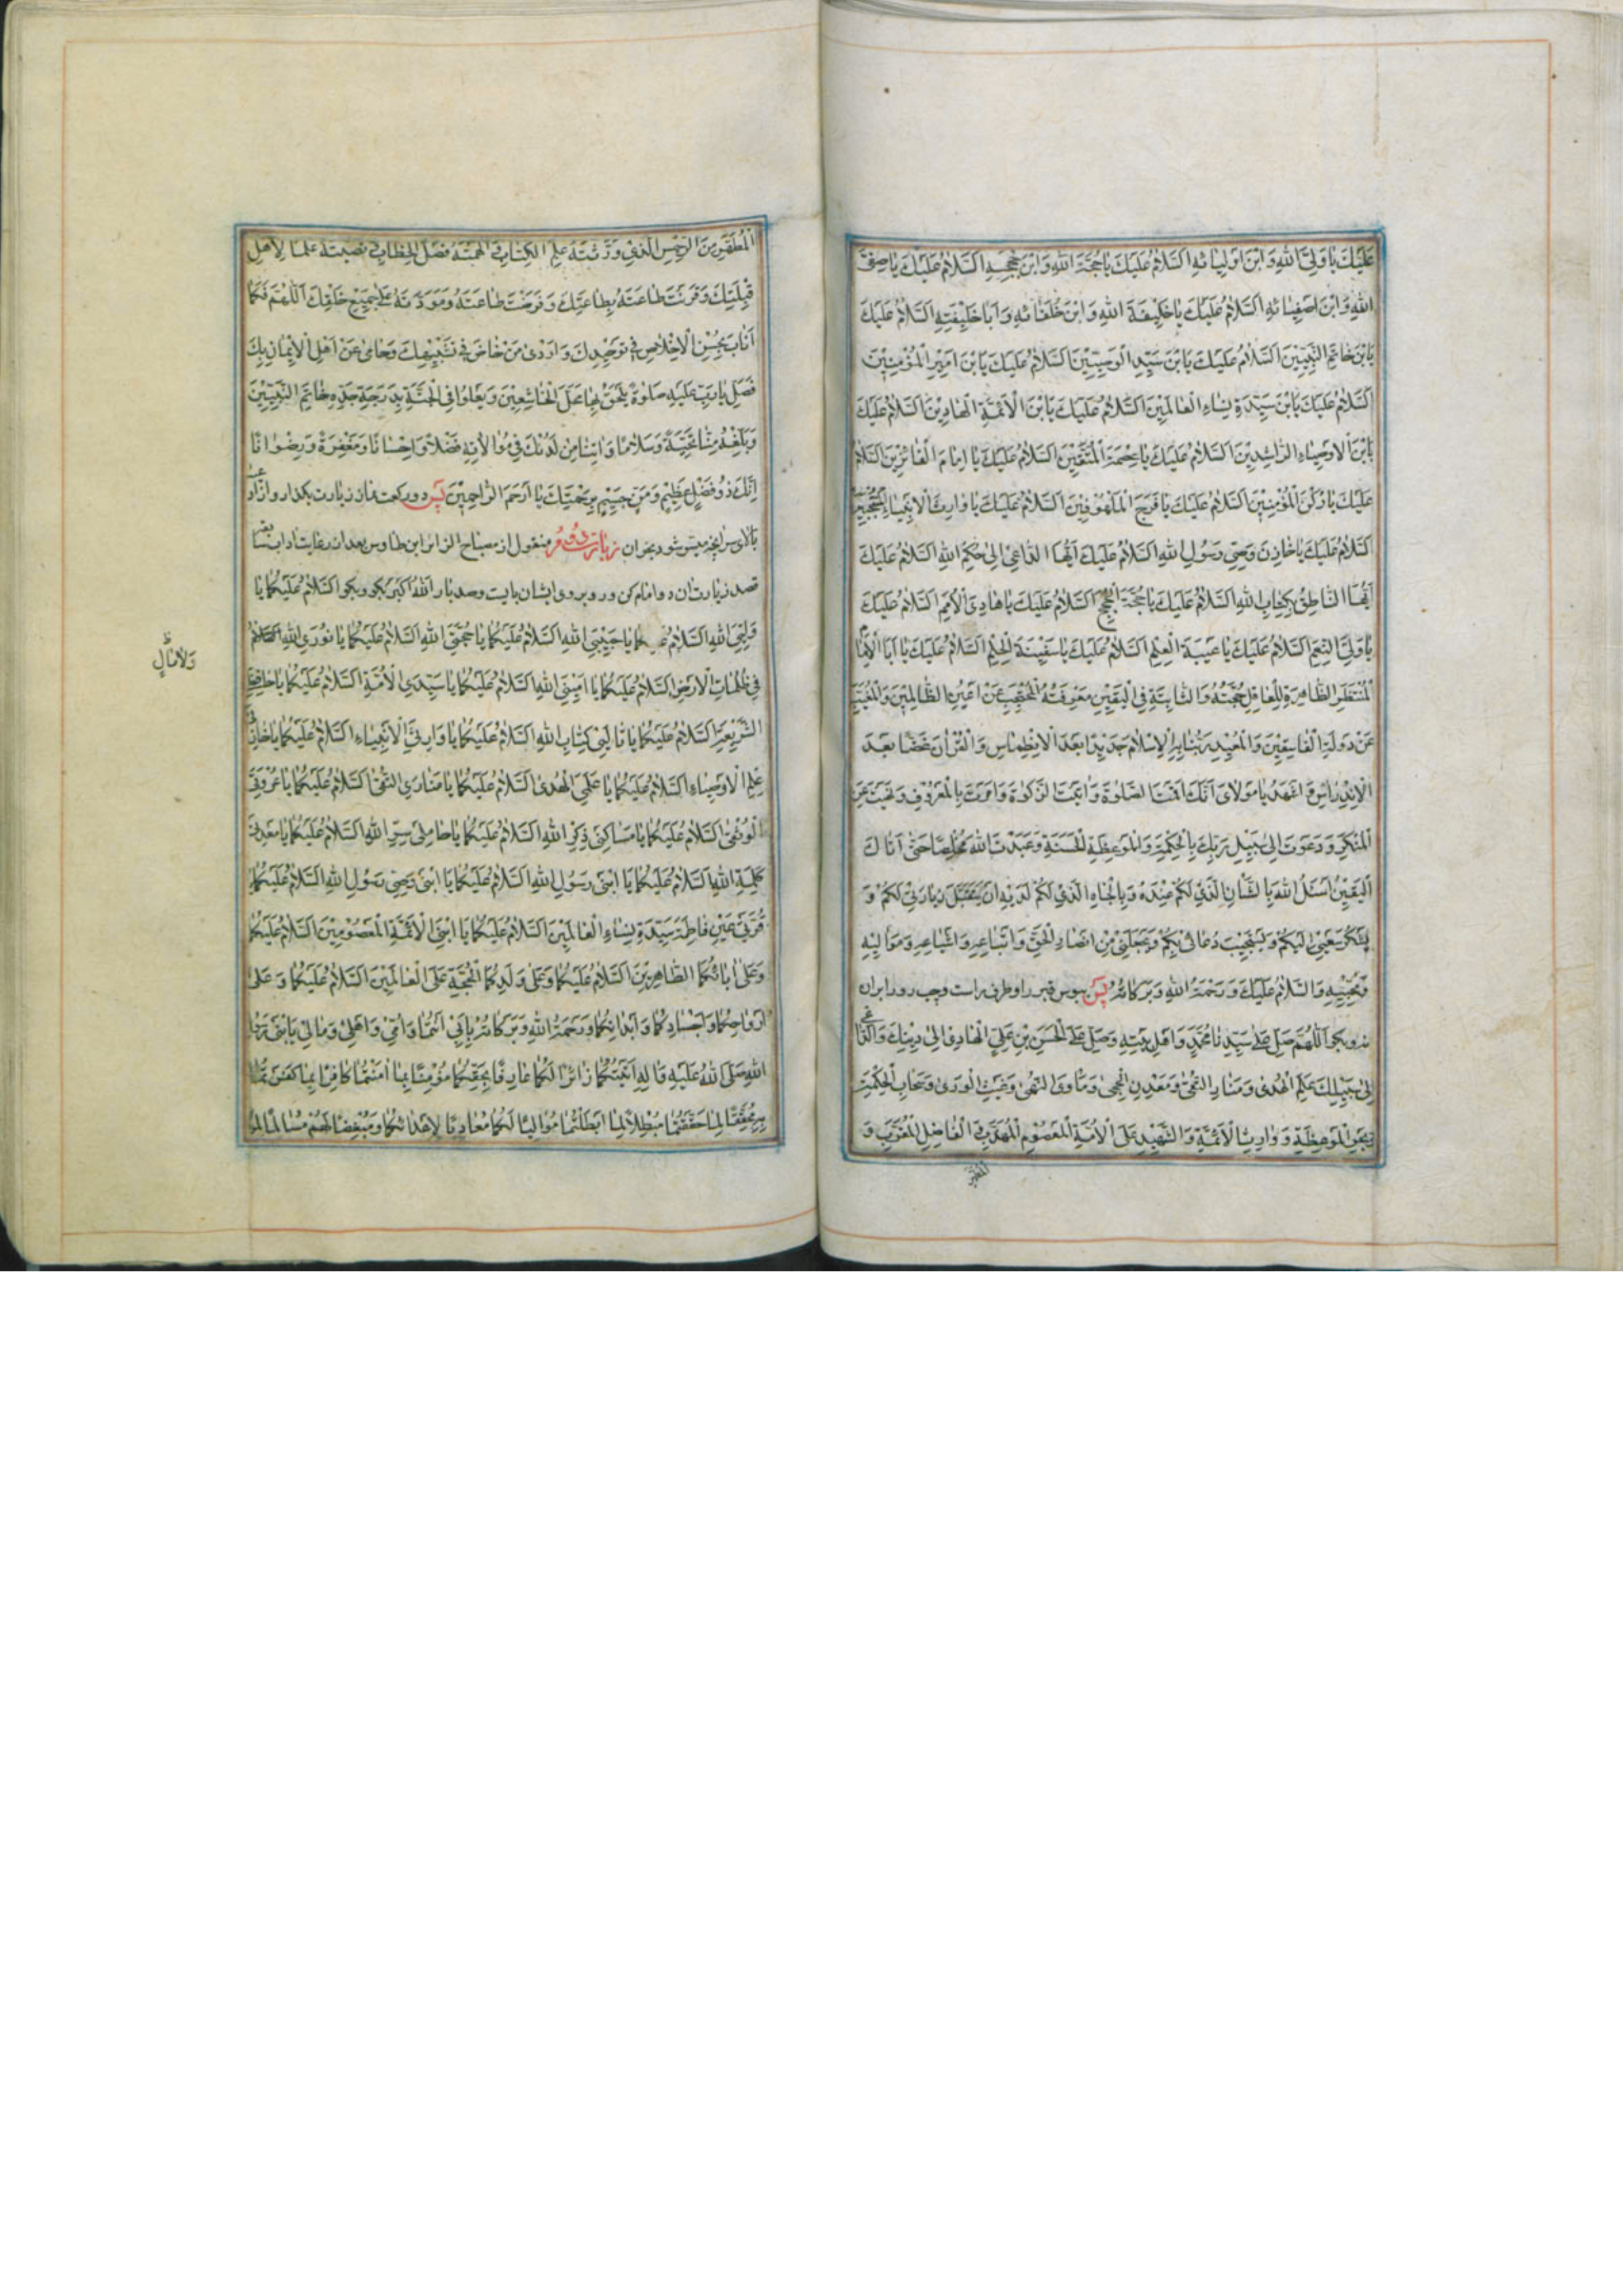 عَلَیْكَ یٰا وَلِیَّ اللّٰهِ وَابْنَ اَوْلِیٰائِهِ اَلسَّلٰامُ عَلَیْكَ یٰا حُجَّةَ اللّٰهِ وَابْنَ حُجَجِهِ اَلسَّلٰامُ عَلَیْكَ یٰا صَفِیَّ
اللّٰهِ وَابْنَ اَصْفِیٰائِهِ اَلسَّلٰامُ عَلَیْكَ یٰا خَلِیفَةَ اللّٰهِ وَابْنَ خُلَفٰائِهِ وَاَبٰا خَلِیْفَتِهِ اَلسَّلٰامُ عَلَیْكَ
یَابْنَ خٰاتَمِ النَّبِیّینَ اَلسَّلٰامُ عَلَیْكَ یَابْنَ سَیِّدِ الْوَصِیّینَ اَلسَّلٰامُ عَلَیْكَ یَابْنَ اَمیرِ الْمُؤْمِنینَ
اَلسَّلٰامُ عَلَیْكَ یَابْنَ سَیِّدَةِ نِسٰاءِ الْعٰالَمینَ اَلسَّلٰامُ عَلَیْكَ یَابْنَ الْاَئِمَّةِ الْهٰادینَ اَلسَّلٰامُ عَلَیْكَ
یَابْنَ الْاَوْصِیٰاءِ الرّٰاشِدینَ اَلسَّلٰامُ عَلَیْكَ یٰا عِصْمَةَ الْمُتَّقینَ اَلسَّلٰامُ عَلَیْكَ یٰا اِمٰامَ الْفٰائِزینَ اَلسَّلٰامُ
عَلَیْكَ یٰا رُكْنَ الْمُؤْمِنینَ اَلسَّلٰامُ عَلَیْكَ یٰا فَرَجَ الْمَلْهُوفینَ اَلسَّلٰامُ عَلَیْكَ یٰا وٰارِثَ الْاَنْبِیٰاءِ الْمُنْتَجَبینَ
اَلسَّلٰامُ عَلَیْكَ یٰا خٰازِنَ وَصِیِّ رَسُولِ اللّٰهِ اَلسَّلٰامُ عَلَیْكَ اَیُّهَا الدّٰاعی اِلیٰ حُكْمِ اللّٰهِ اَلسَّلٰامُ عَلَیْكَ
اَیُّهَا النّٰاطِقُ بِكِتٰابِ اللّٰهِ اَلسَّلٰامُ عَلَیْكَ یٰا حُجَّةَ الْحُجَجِ اَلسَّلٰامُ عَلَیْكَ یٰا هٰادِیَ الْاُمَمِ اَلسَّلٰامُ عَلَیْكَ
یٰا وَلِیَّ النِّعَمِ اَلسَّلٰامُ عَلَیْكَ یٰا عَیْبَةَ الْعِلْمِ اَلسَّلٰامُ عَلَیْكَ یٰا سَفینَةَ الْحِلْمِ اَلسَّلٰامُ عَلَیْكَ یٰا اَبَا الْاِمٰامِ
الْمُنْتَظَرِ الظّٰاهِرَةِ لِلْعٰاقِلِ حُجَّتُهُ وَالثّٰابِتَةِ فِی الْیَقینِ مَعْرِفَتُهُ الْمُحْتَجَبِ عَنْ اَعْیُنِ الظّٰالِمینَ وَالْمُغَیَّبِ
عَنْ دَوْلَةِ الْفٰاسِقینَ وَالْمُعیدِ رَبُّنٰا بِهِ الْاِسْلٰامَ جَدیدًا بَعْدَ الْاِنْطِمٰاسِ وَالْقُرْاٰنَ غَضًّا بَعْدَ
الْاِنْدِرٰاسِ وَ اَشْهَدُ یٰا مَوْلٰایَ اَنَّكَ اَقَمْتَ الصَّلٰوةَ وَاٰتَیْتَ الزَّكٰوةَ وَاَمَرْتَ بِالْمَعْرُوفِ وَنَهَیْتَ عَنِ
الْمُنْكَرِ وَدَعَوْتَ اِلیٰ سَبیلِ رَبِّكَ بِالْحِكْمَةِ وَالْمَوْعِظَةِ الْحَسَنَةِ وَعَبَدْتَ اللّٰهَ مُخْلِصًا حَتّیٰ اَتٰاكَ
الْیَقینُ اَسْئَلُ اللّٰهَ بِالشَّاْنِ الَّذی لَكُمْ عِنْدَهُ وَبِالْجٰاهِ الَّذی لَكُمْ لَدَیْهِ اَنْ یَتَقَبَّلَ زِیٰارَتی لَكُمْ وَ
یَشْكُرَ سَعْیی اِلَیْكُمْ وَیَسْتَجیبَ دُعٰائی بِكُمْ وَیَجْعَلَنی مِنْ اَنْصٰارِ الْحَقِّ وَاَتْبٰاعِهِ وَاَشْیٰاعِهِ وَمَوٰالیهِ
وَمُحِبّیهِ وَالسَّلٰامُ عَلَیْكَ وَرَحْمَةُ اللّٰهِ وَبَرَكٰاتُهُ پس ببوس قبر را و طرفی راست و چپ رو را بر ان
نه و بگو اَللّٰهُمَّ صَلِّ عَلیٰ سَیِّدِنٰا مُحَمَّدٍ وَاَهْلِ بَیْتِهِ وَصَلِّ عَلَی الْحَسَنِ بْنِ عَلِیٍّ الْهٰادی اِلیٰ دینِكَ وَالدّٰاعی
اِلیٰ سَبیلِكَ عَلَمِ الْهُدیٰ وَمَنٰارِ التُّقیٰ وَمَعْدِنِ الْحِجیٰ وَمَاْوَی النُّهیٰ وَغَیْثِ الْوَریٰ وَسَحٰابِ الْحِكْمَةِ
وَبَحْرِ الْمَوْعِظَةِ وَ وٰارِثِ الْاَئِمَّةِ وَالشَّهیدِ عَلَی الْاُمَّةِ الْمَعْصُومِ الْمُهَذَّبِ الْفٰاضِلِ الْمُقَرَّبِ وَ
الْمُطَهَّرِ
الْمُطَهَّرِ مِنَ الرِّجْسِ الَّذی وَرَّثْتَهُ عِلْمَ الْكِتٰابِ وَاَلْهَمْتَهُ فَصْلَ الْخِطٰابِ وَنَصَبْتَهُ عَلَمًا لِاَهْلِ
قِبْلَتِكَ وَقَرَنْتَ طٰاعَتَهُ بِطٰاعَتِكَ وَفَرَضْتَ طٰاعَتَهُ وَمَوَدَّتَهُ عَلیٰ جَمیعِ خَلْقِكَ اَللّٰهُمَّ فَكَمٰا
اَنٰابَ بِحُسْنِ الْاِخْلٰاصِ فی تَوْحیدِكَ وَاَرْدیٰ مَنْ خٰاضَ فی تَشْبیهِكَ وَحٰامیٰ عَنْ اَهْلِ الْاِیْمٰانِ بِكَ
فَصَلِّ یٰا رَبِّ عَلَیْهِ صَلٰوةً یَلْحَقُ بِهٰا مَحَلَّ الْخٰاشِعینَ وَیَعْلُوا فِی الْجَنَّةِ بِدَرَجَةِ جَدِّهِ خٰاتَمِ النَّبِیّینَ
وَبَلِّغْهُ مِنّٰا تَحِیَّةً وَسَلٰامًا وَاٰتِنٰا مِنْ لَدُنْكَ فی مُوٰالٰاتِهِ فَضْلًا وَاِحْسٰانًا وَمَغْفِرَةً وَرِضْوٰانًا
اِنَّكَ ذُو فَضْلٍ عَظیمٍ وَمَنٍّ جَسیمٍ بِرَحْمَتِكَ یٰا اَرْحَمَ الرّٰاحِمینَ پس دو ركعت نماز زیارت بگذار و از ادعیه
بالای سر انچه میسر شود بخوان زیارت دیگر منقول از مصباح الزائر ابن طاوس بعد از رعایت اداب
قصد زیارت ان دو امام كن و رو بروی ایشان بایست و صد بار اَللّٰهُ اَكْبَرُ بگو و بگو اَلسَّلٰامُ عَلَیْكُمٰا یٰا
وَلِیَّیِ اللّٰهِ اَلسَّلٰامُ عَلَیْكُمٰا یٰا حَبیبَیِ اللّٰهِ اَلسَّلٰامُ عَلَیْكُمٰا یٰا حُجَّتَیِ اللّٰهِ اَلسَّلٰامُ عَلَیْكُمٰا یٰا نُورَیِ اللّٰهِ
فی ظُلُمٰاتِ الْاَرْضِ اَلسَّلٰامُ عَلَیْكُمٰا یٰا اَمینَیِ اللّٰهِ اَلسَّلٰامُ عَلَیْكُمٰا یٰا سَیِّدَیِ الْاُمَّةِ اَلسَّلٰامُ عَلَیْكُمٰا یٰا حٰافِظَیِ
الشَّریعَةِ اَلسَّلٰامُ عَلَیْكُمٰا یٰا تٰالِیَیْ كِتٰابِ اللّٰهِ اَلسَّلٰامُ عَلَیْكُمٰا یٰا وٰارِثَیِ الْاَنْبِیٰاءِ اَلسَّلٰامُ عَلَیْكُمٰا یٰا خٰازِنَیْ
عِلْمِ الْاَوْصِیٰاءِ اَلسَّلٰامُ عَلَیْكُمٰا یٰا عَلَمَیِ الْهُدیٰ اَلسَّلٰامُ عَلَیْكُمٰا یٰا مَنٰارَیِ التُّقیٰ اَلسَّلٰامُ عَلَیْكُمٰا یٰا عُرْوَتَیِ
الْوُثْقیٰ اَلسَّلٰامُ عَلَیْكُمٰا یٰا مَسٰاكِنَیْ ذِكْرِ اللّٰهِ اَلسَّلٰامُ عَلَیْكُمٰا یٰا حٰامِلَیْ سِرِّ اللّٰهِ اَلسَّلٰامُ عَلَیْكُمٰا یٰا مَعْدِنَیْ
كَلِمَةِ اللّٰهِ اَلسَّلٰامُ عَلَیْكُمٰا یَا ابْنَیْ رَسُولِ اللّٰهِ اَلسَّلٰامُ عَلَیْكُمٰا یَا ابْنَیْ وَصِیِّ رَسُولِ اللّٰهِ اَلسَّلٰامُ عَلَیْكُمٰا یٰا
قُرَّتَیْ عَیْنِ فٰاطِمَةَ سَیِّدَةِ نِسٰاءِ الْعٰالَمینَ اَلسَّلٰامُ عَلَیْكُمٰا یَا ابْنَیِ الْاَئِمَّةِ الْمَعْصُومینَ اَلسَّلٰامُ عَلَیْكُمٰا
وَعَلیٰ اٰبٰائِكُمَا الطّٰاهِرینَ اَلسَّلٰامُ عَلَیْكُمٰا وَعَلیٰ وَلَدِكُمَا الْحُجَّةِ عَلَی الْعٰالَمینَ اَلسَّلٰامُ عَلَیْكُمٰا وَعَلیٰ
اَرْوٰاحِكُمٰا وَاَجْسٰادِكُمٰا وَاَبْدٰانِكُمٰا وَرَحْمَةُ اللّٰهِ وَبَرَكٰاتُهُ بِاَبی اَنْتُمٰا وَاُمّی وَاَهْلی وَمٰالی یَا ابْنَیْ رَسُولِ
اللّٰهِ صَلَّی اللّٰهُ عَلَیْهِ وَاٰلِهِ اَتَیْتُكُمٰا زٰائِرًا لَكُمٰا عٰارِفًا بِحَقِّكُمٰا مُؤْمِنًا بِمٰا اٰمَنْتُمٰا كٰافِرًا بِمٰا كَفَرْتُمٰا
بِهِ مُحَقِّقًا لِمٰا حَقَّقْتُمٰا مُبْطِلًا لِمٰا اَبْطَلْتُمٰا مُوٰالِیًا لَكُمٰا مُعٰادِیًا لِاَعْدٰائِكُمٰا وَمُبْغِضًا لَهُمْ مُسٰالِمًا
وَلٰا مٰالٍ